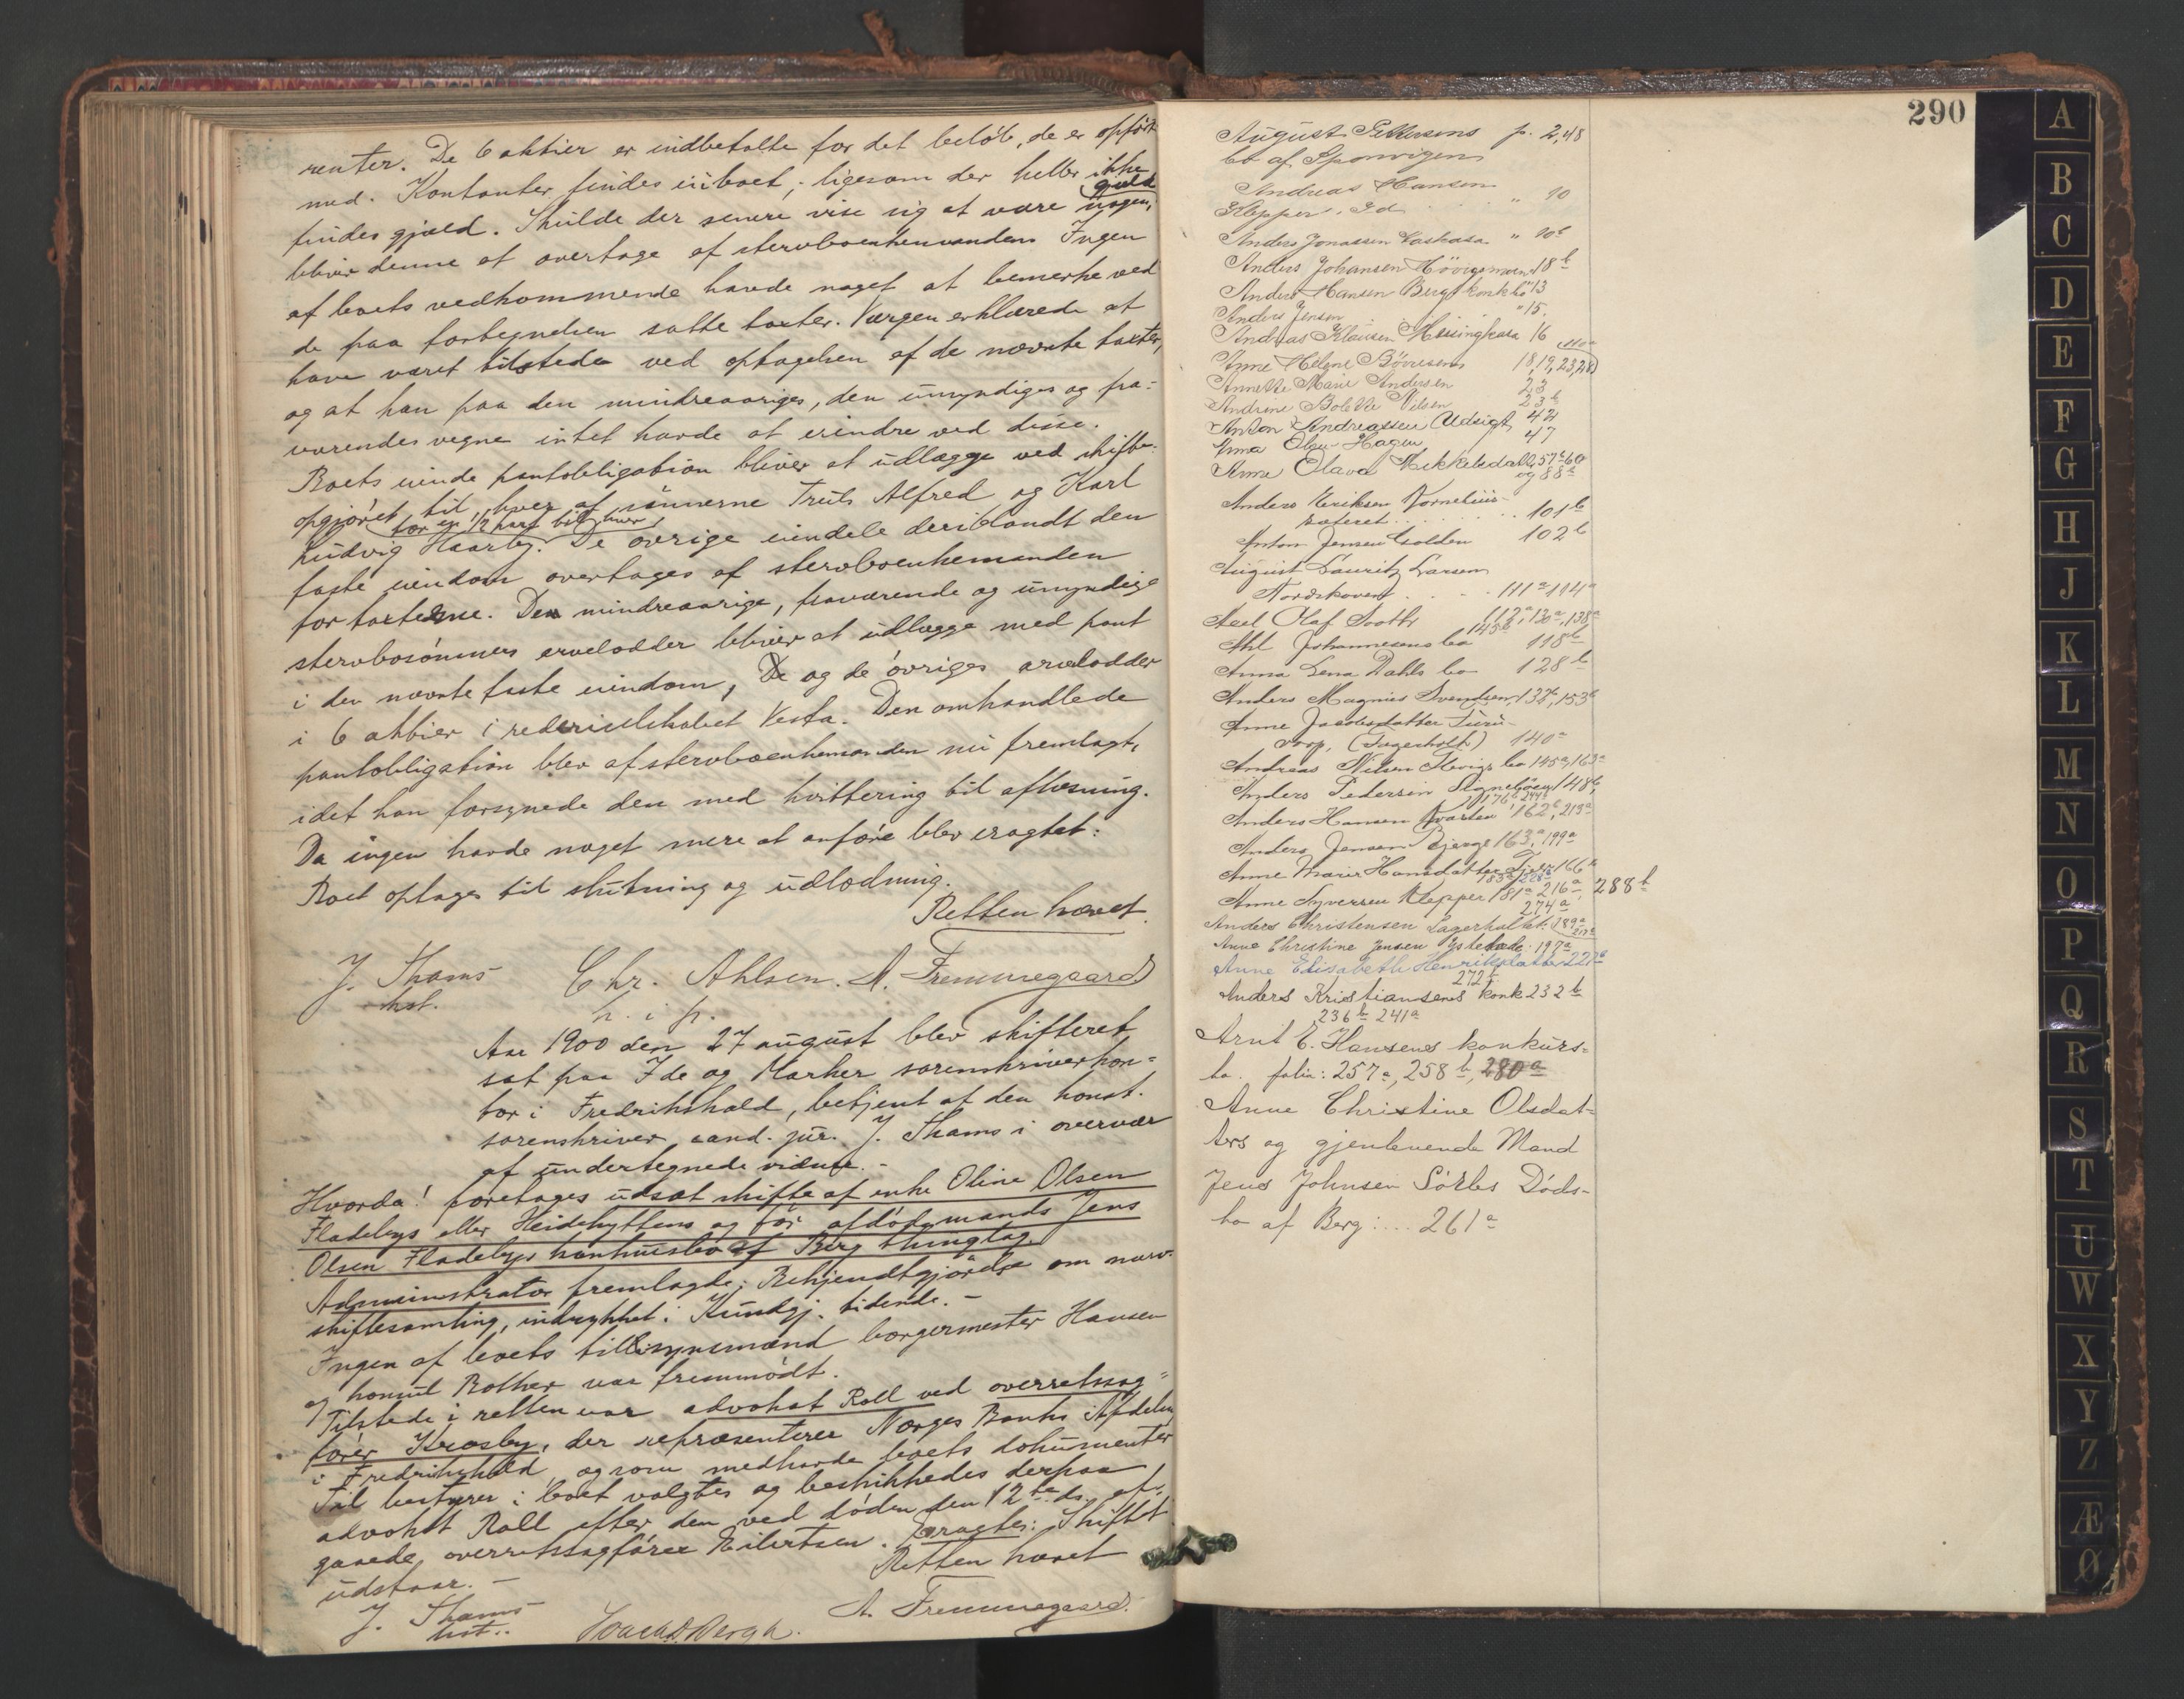 renter. De 6 aktier er indbetalte for det beløb, de er opført
med. Kontanter findes ei i boet, ligesom der heller ikke
findes gjæld. Skulde der senere vise sig at være nogen gjæld
bliver denne at overtage af stervboenkemanden. Ingen
af boets vedkommende havde noget at bemerke ved
de paa fortegnelsen satte taxter. Værgen erklærede at
have været tilstede ved optagelsen af de nævnte taxter,
og at han paa den mindreaariges, den umyndiges og fra-
værendes vegne intet havde at erindre ved disse.
Boets eiende pantobligation bliver at udlægge ved skifte-
opgjøret til hver af sønnerne Truls Alfred og Karl
for en 1/2 part til hver
Ludvig Haarby. De øvrige eiendele deriblandt den
faste eiendom overtages af stervboenkemanden
for taxterne. Den mindreaarige, fraværende og umyndige
stervbosønners arvelodder bliver at udlægge med pant
i den nævnte faste eiendom, De og de øvriges arvelodder
i 6 aktier i rederiselskabet Vesta. Den omhandlede
pantobligation blev af stervboenkemanden nu fremlagt,
idet han forsynede den med kvittering til aflæsning.
Da ingen havde noget mere at anføre blev eragtet:
Boet optages til slutning og udlodning.
Retten hævet.
J. Thams Chr. Ahlsen. A. Fremmegaard
kst. h. i p.
Aar 1900 den 27 august blev skifteret
sat paa Ide og Marker sorenskriverkon-
tor i Fredrikshald, betjent af den konst.
sorenskriver, cand. jur. J. Thams i overvær
af undertegnede vidne. -
Hvorda! foretages udsat skifte af enke Oline Olsen
Fladebys eller Heidehyttens og før afdøde mands Jens
Olsen Fladebys konkursbo af Berg thinglag.
Administrator fremlagde: Bekjendtgjørelse om nærv.
skiftesamling, indrykket i Kundgj. tidende. -
Ingen af boets tillsynsmænd borgermester Hansen
og konsul Bother var fremmødt.
Tilstede i retten var advokat Roll ved overretssag-
fører Krosby, der repræsenterer Norges Banks Afdeling
i Fredrikshald, og som medhavde boets dokumenter
Til bestyrer i boet valgtes og beskikkedes derpaa
advokat Roll efter den ved døden den 12te ds. af-
gaaede overretssagfører Eilertsen. Eragtes: Skiftet
udstaar. - Retten hævet
J. Thams A. Fremmegaard.
kst..
290
August Pettersens p. 2,48
bo af Sponvigen
Andreas Hansen
Klepper. Id " 90
Anders Jonassen " 90b
Anders Johansen 18b
Anders Hansen Berg konkbo " 13
Anders Jensen " 15.
Andreas Klausen 16
Anne Helene Børresens 18, 19, 23, 28
Annette Marie Andersen 23
Andrine Bolette Nilsen 23b
Anton Andreassen Udsigt 42
Anna Olsen Hagen 47
Anne Olava Mikkelsdatter 57a 60
og 88a
Anders Eriksen Kornelius-
rateret 101b
Anton Jensen Holden 102b
August Lauritz Larsen
Nordskoven 111a 114a
Axel Olaf 112a, 120a, 138a
145b
Ahl Johannesens bo 118b
Anna Lena Dahls bo 128b
Anders Magnus Svendsen 132b, 153b
Anne Jacobsdatter Furu-
torp, (Fagerholt) 140a
Andreas Nilsen bo 145a, 163a
Anders Pedersen Signebøen 148b,
176b 244b
Anders Hansen Svarten 162b, 213a
Anders Jensen Bjerge 163a, 199a
Anne Marie Hansdatter 166a
183a 228a
Anne Syversen Klepper 181a 216a, 288b
274a
Anders Christensen Lagerholtet 189a
Anne Christine Jensen Ystehede 197a
Anne Elisabeth Henriksdatter 221a
272b
Anders Kristiansens konk 232b
236b 241a
Arnt E. Hansens konkurs-
bo. folie: 257a, 258b, 280a
Anne Christine Olsdat-
ters og gjenlevende Mand
Jens Johnsen Sørlis Døds-
bo af Berg: ... 261a
A
B
C
D
E
F
G
H
J
K
L
M
N
O
P
Q
R
S
T
U
W
X
Y
Z
Æ
Ø